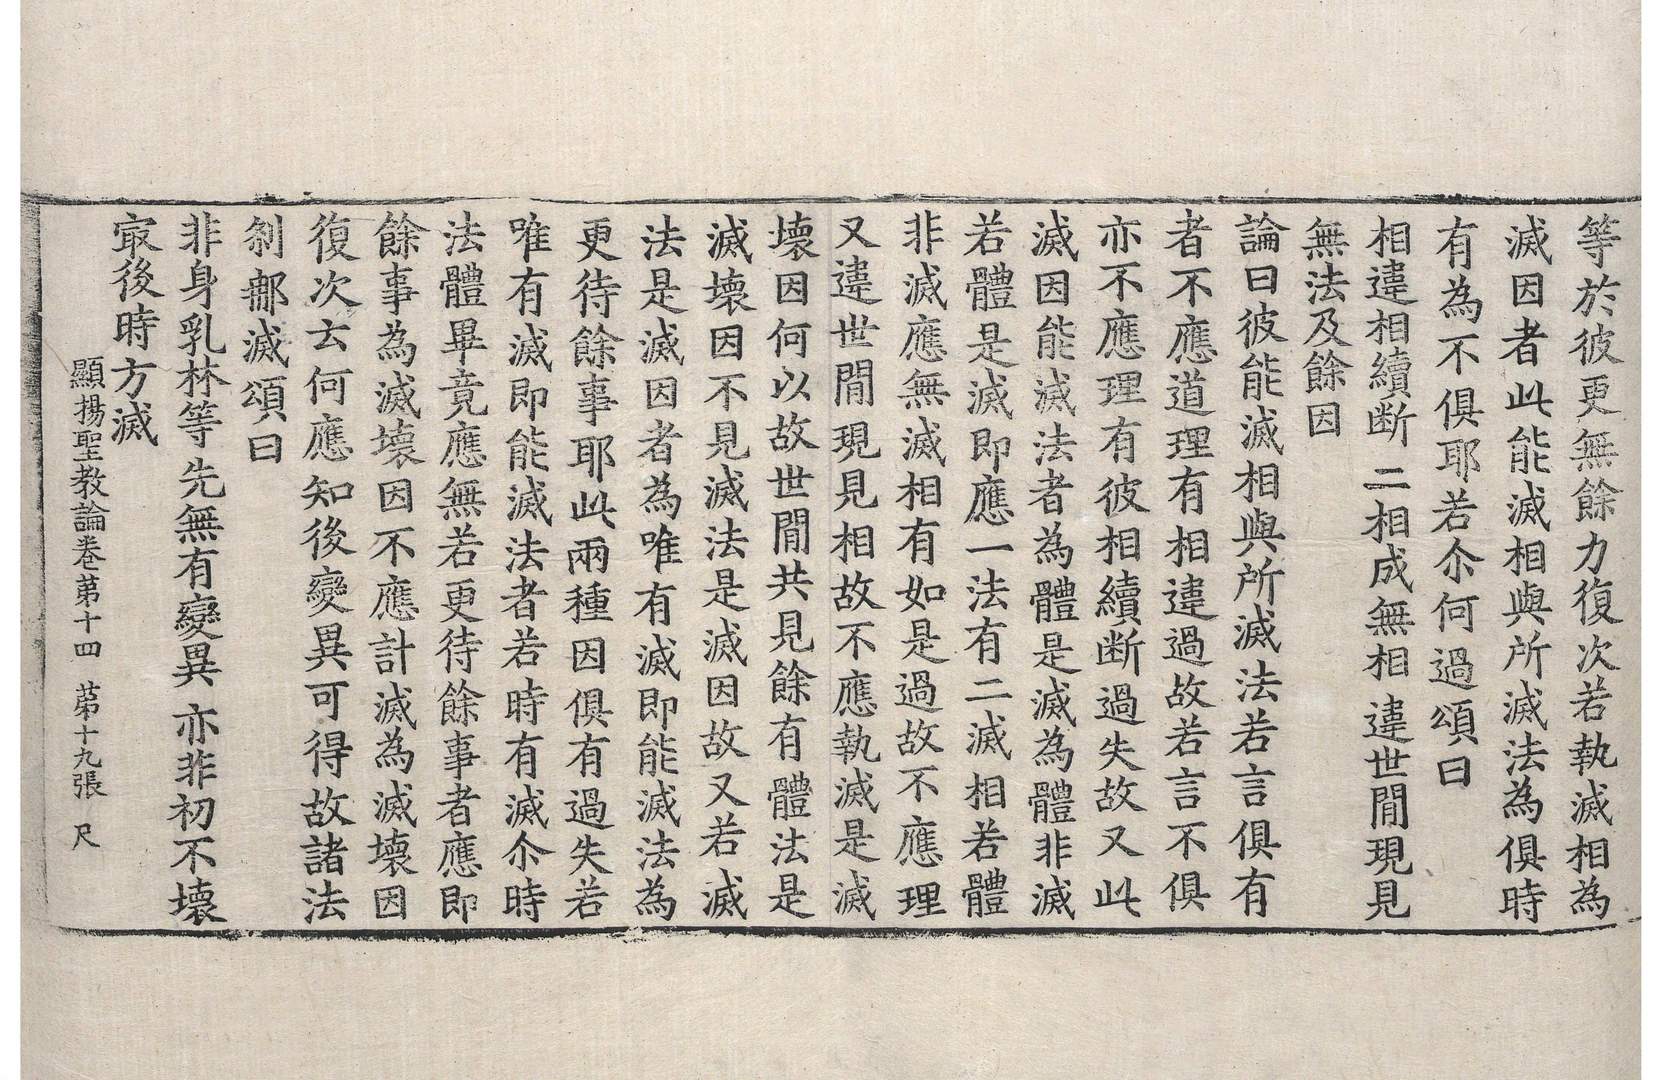 等於彼更無餘力復次若執滅相為
滅因者此能滅相與所滅法為俱時
有為不俱耶若尒何過頌曰
相違相續斷 二相成無相 違世間現見
無法及餘因
論曰彼能滅相與所滅法若言俱有
者不應道理有相違過故若言不俱
亦不應理有彼相續斷過失故又此
滅因能滅法者為體是滅為體非滅
若體是滅即應一法有二滅相若體
非滅應無滅相有如是過故不應理
又違世間現見相故不應執滅是滅
壞因何以故世間共見餘有體法是
滅壞因不見滅法是滅因故又若滅
法是滅因者為唯有滅即能滅法為
更待餘事耶此兩種因俱有過失若
唯有滅即能滅法者若時有滅尒時
法體畢竟應無若更待餘事者應即
餘事為滅壞因不應計滅為滅壞因
復次云何應知後變異可得故諸法
剎那滅頌曰
非身乳林等 先無有變異 亦非初不壞
冣後時方滅
顯揚聖教論卷苐十四 苐十九張 尺